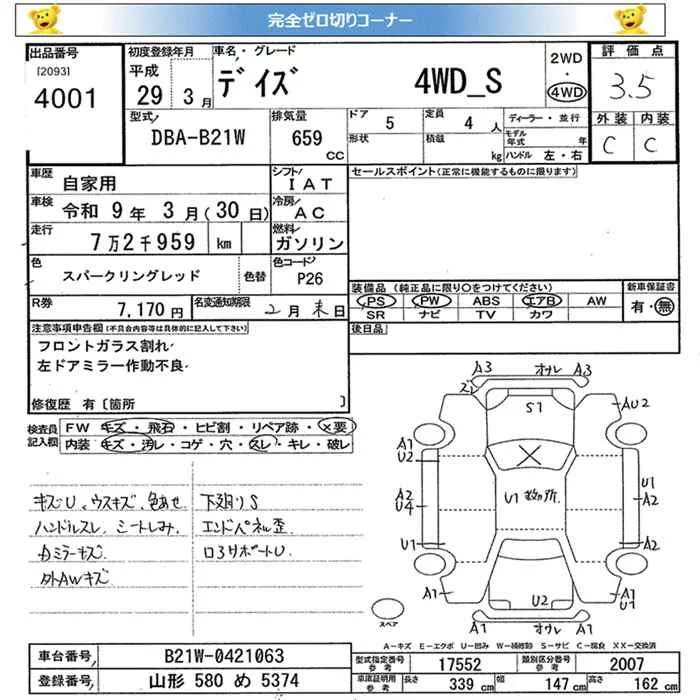 完全ゼロ切りコーナー
出品番号 初度登録年月 車名・グレード 2WD 評価点
[2093] 平成 デイズ 4WD_S ・ 3.5
4001 29 3月 4WD
型式 排気量 ドア 5 定員 4人 ディーラー・並行 外装 内装
DBA-B21W 659 cc 形状 積載 kg モデル年式 年 C C
ハンドル 左・右
車歴 自家用 シフト IAT セールスポイント(正常に機能するものに限ります)
車検 令和 9年 3月(30日) 冷房 AC
走行 7万2千959 km 燃料 ガソリン
色 スパークリングレッド 色替 色コード P26
装備品 (純正品に限り○をつけてください) 新車保証書
R券 7,170円 名変通知期限 2月末日 PS PW ABS エアB AW 有・無
SR ナビ TV カワ
注意事項申告欄(不具合内容等は具体的に記入して下さい) 後日品
フロントガラス割れ
左ドアミラー作動不良
修復歴 有〔箇所 〕
検査員記入欄 FW キズ・飛石・ヒビ割・リペア跡・×要
内装 キズ・汚レ・コゲ・穴・スレ・キレ・破レ
キズU、ウスキズ、色あせ 下廻りS
ハンドルスレ、シートしみ、 エンドパネル歪
カミラーキズ ロ3サポートU
外AWキズ
A3 オサレ A3
ズレ
S1 AU2
A1
U2
A2 U1 数ヶ所 U1
U4 A2
U1 A2
A1 U2 A1
U1
A1 オサレ A1
スペア
A-キズ E-エクボ U-凹み W-補修跡 S-サビ C-腐食 XX-交換済
車台番号 B21W-0421063 型式指定番号 参考 17552 類別区分番号 参考 2007
登録番号 山形 580 め 5374 車庫証明用 参考 長さ 339 cm 幅 147 cm 高さ 162 cm